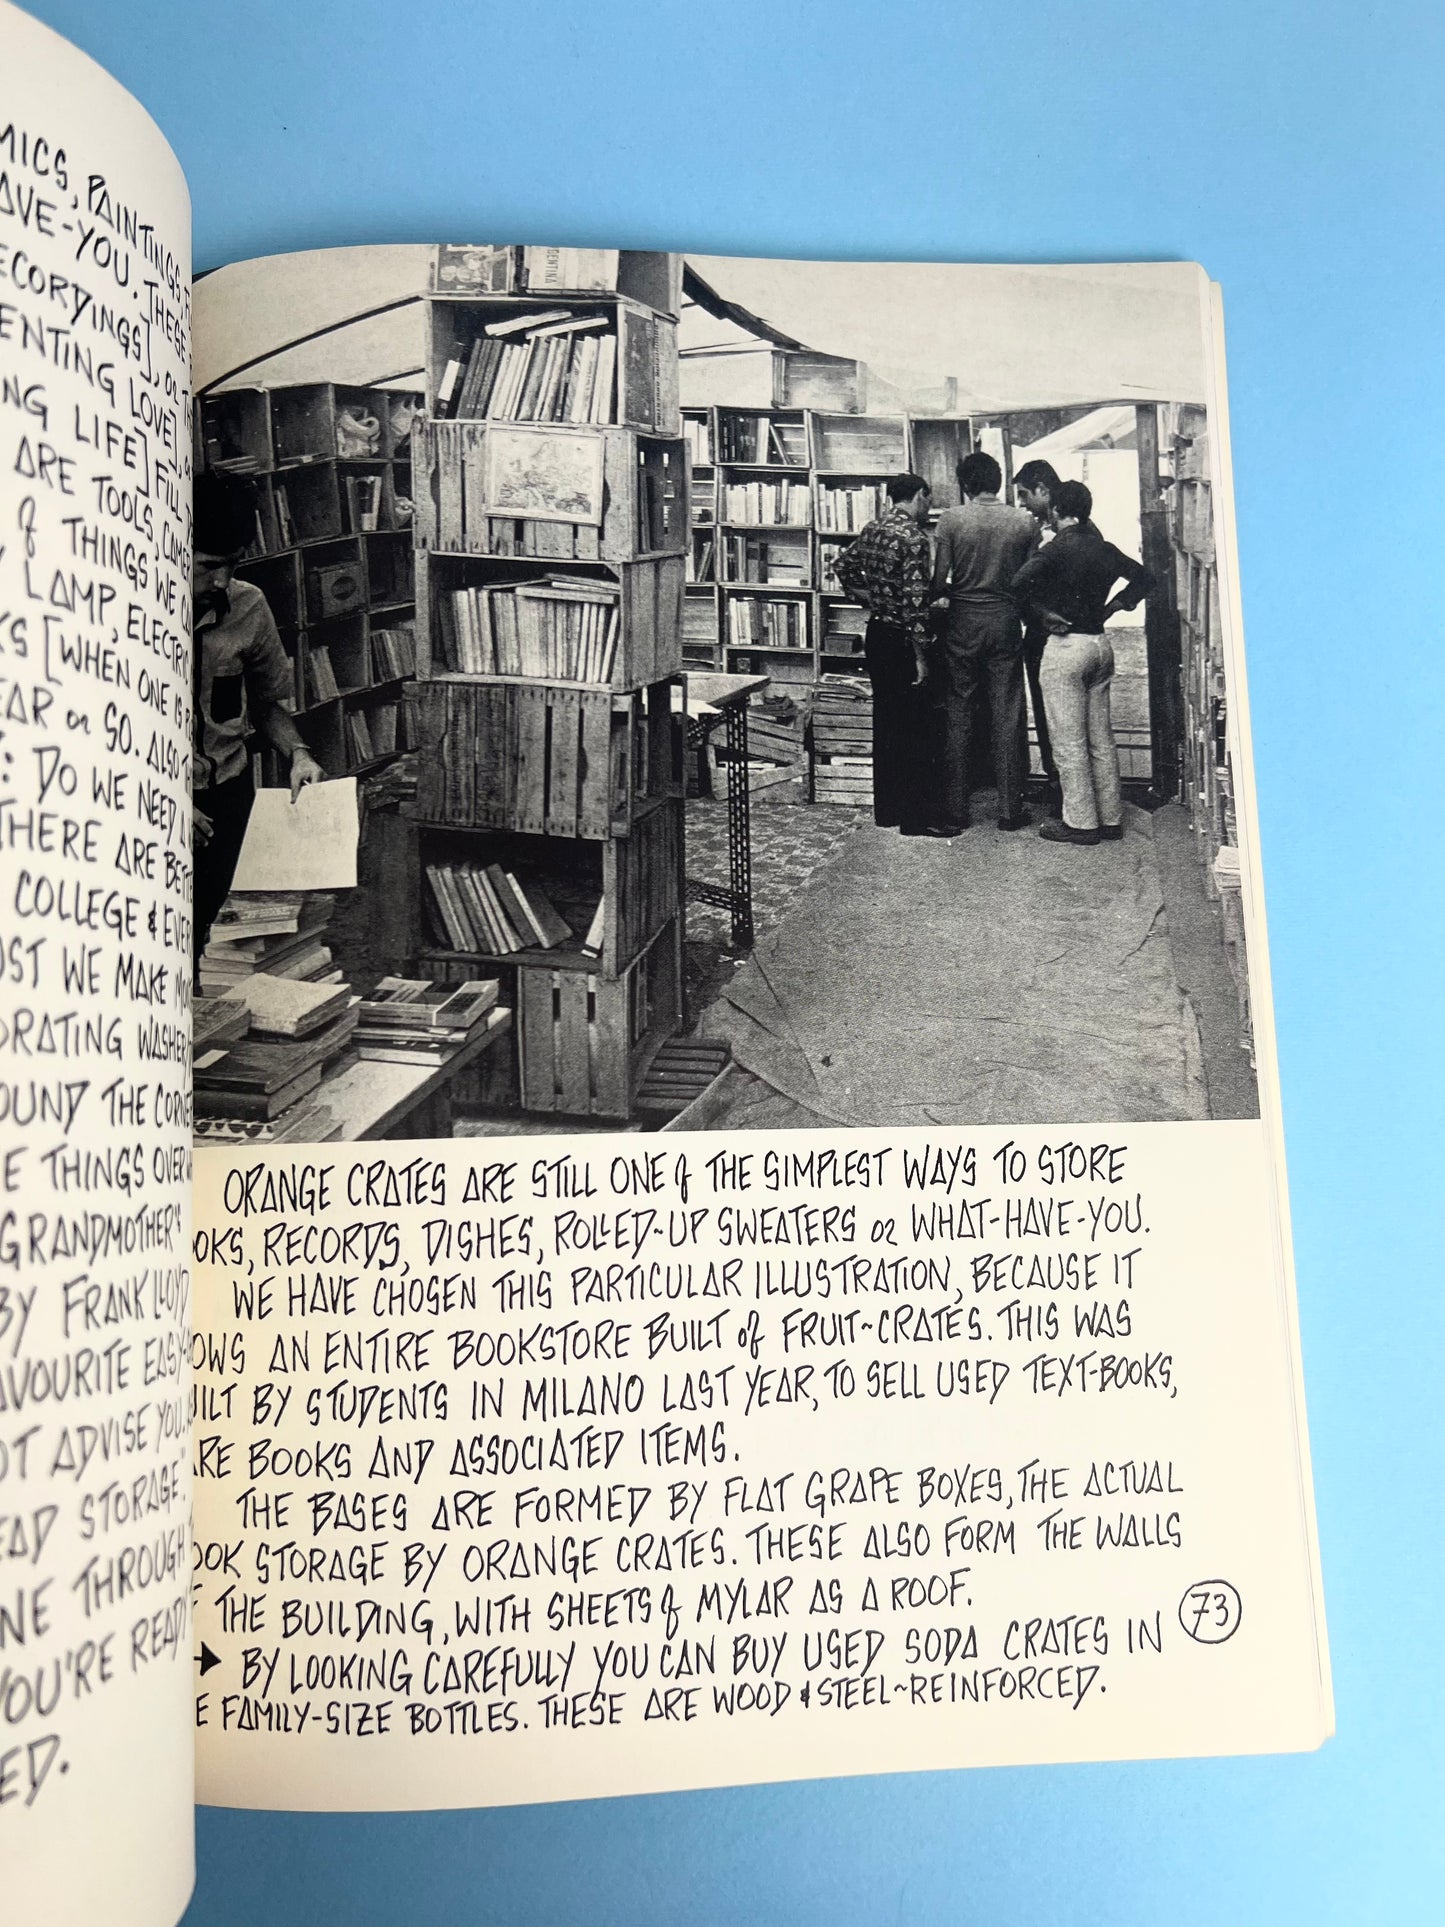 PAINTINGS,
AVE-YOU. THESE
ENTING LOVE],
NG LIFE] FILL
ARE TOOLS,
of THINGS WE
LAMP, ELECTRIC
[WHEN ONE IS
or SO. ALSO
: DO WE NEED A
THERE ARE
COLLEGE & EVER
WE MAKE
WASHER
THE CORNER
THINGS OVER
GRANDMOTHER'S
BY FRANK LLOYD
ADVISE YOU.
STORAGE."
THROUGH
YOU'RE READY
ED.
ORANGE CRATES ARE STILL ONE of THE SIMPLEST WAYS TO STORE
OKS, RECORDS, DISHES, ROLLED-UP SWEATERS or WHAT-HAVE-YOU.
WE HAVE CHOSEN THIS PARTICULAR ILLUSTRATION, BECAUSE IT
OWS AN ENTIRE BOOKSTORE BUILT of FRUIT-CRATES. THIS WAS
ILT BY STUDENTS IN MILANO LAST YEAR, TO SELL USED TEXT-BOOKS,
ARE BOOKS AND ASSOCIATED ITEMS.
THE BASES ARE FORMED BY FLAT GRAPE BOXES, THE ACTUAL
OOK STORAGE BY ORANGE CRATES. THESE ALSO FORM THE WALLS
THE BUILDING, WITH SHEETS of MYLAR AS A ROOF.
→ BY LOOKING CAREFULLY YOU CAN BUY USED SODA CRATES IN
E FAMILY-SIZE BOTTLES. THESE ARE WOOD & STEEL-REINFORCED.
73